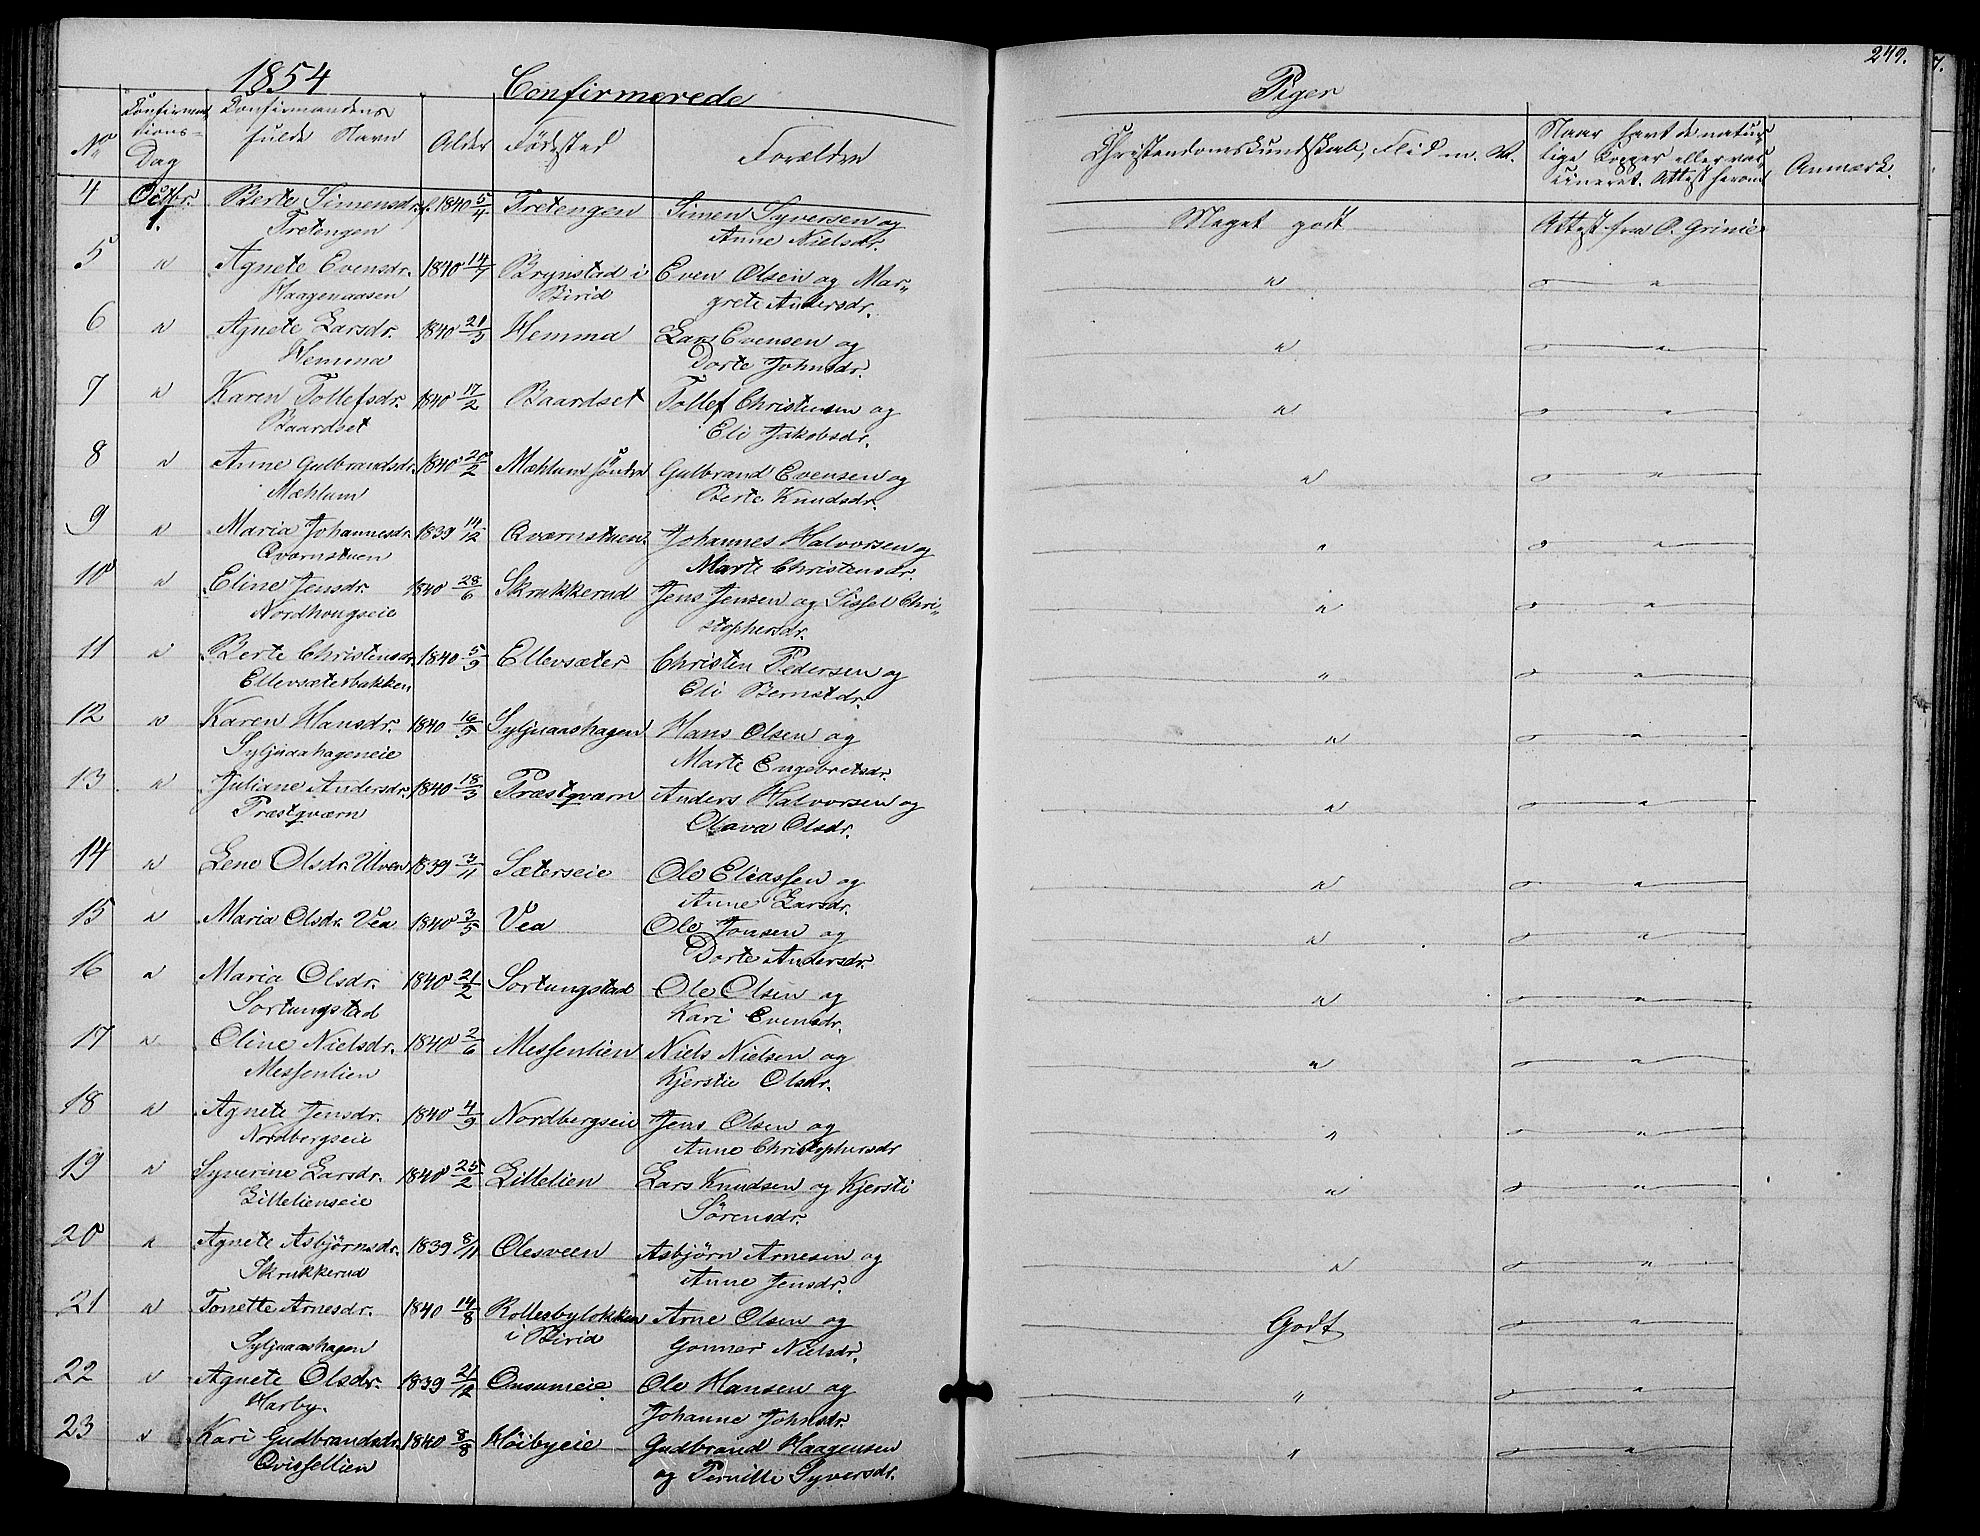 1854 Confirmerede Piger 249.
No Confirmations-Dag Confirmandens fulde Navn Alder Födested Forældre Christendomskundskab, Flid m. V. Naar havt de naturlige Kopper eller vaccineret. Attest herom Anmærk.
4 Octbr. 1. Berte Simensdr. f. 1840 5/4 Tretengen Simen Syversen og Meget godt Attest fra O. Grinie
Tretengen Anne Nielsdr.
5 " Agnete Evensdr. 1840 14/7 Brynstad i Even Olsen og Mar- " "
Haagenaasen Birid grete Andersdr.
6 " Agnete Larsdr. 1840 21/5 Hemma Lars Evensen og " "
Hemma Dorte Johnsdr.
7 " Karen Tollefsdr. 1840 17/2 Baardset Tollef Christensen og " "
Baardset Eli Jakobsdr.
8 " Anne Gulbrandsdr. 1840 20/2 Mæhlum söndre Gulbrand Evensen og " "
Mæhlum Berte Knudsdr.
9 " Maria Johannesdr. 1839 14/12 Qværnstuen Johannes Halvorsen og " "
Qværnstuen Marte Christensdr.
10 " Eline Jensdr. 1840 28/6 Skrukkerud Jens Jensen og Sissel Chri- " "
Nordhougseie stophersdr.
11 " Berte Christensdr. 1840 5/9 Ellevsæter Christen Pedersen og " "
Ellevsæterbakken Eli Berntsdr.
12 " Karen Hansdr. 1840 16/5 Syljuaashagen Hans Olsen og " "
Syljuaahageneie Marte Engebretsdr.
13 " Juliane Andersdr. 1840 18/3 Præstqværn Anders Halvorsen og " "
Præstqværn Olava Olsdr.
14 " Lene Olsdr. Ulven 1839 3/11 Sæterseie Ole Eliassen og " "
Anne Larsdr.
15 " Maria Olsdr. Vea 1840 3/5 Vea Ole Jonsen og " "
Dorte Andersdr.
16 " Maria Olsdr. 1840 21/2 Sortungstad Ole Olsen og " "
Sortungstad Kari Evensdr.
17 " Oline Nielsdr. 1840 2/6 Messenlien Niels Nielsen og " "
Messenlien Kjerstie Olsdr.
18 " Agnete Jensdr. 1840 4/9 Nordbergseie Jens Olsen og " "
Nordbergseie Anne Christophersdr
19 " Syverine Larsdr. 1840 25/2 Lillelien Lars Knudsen og Kjersti " "
Lillelienseie Sörensdr.
20 " Agnete Asbjörnsdr. 1839 8/11 Olesveen Asbjörn Arnesen og " "
Skrukkerud Anne Jensdr.
21 " Tonette Arnesdr. 1840 14/8 Rollesbylökken Arne Olsen og Godt "
Syljuaashagen i Birid Gonner Nielsdr.
22 " Agnete Olsdr. 1839 21/12 Onsumeie Ole Hansen og " "
Harby. Johanne Johnsdr.
23 " Kari Gudbrandsdr. 1840 8/8 Höibyeie Gudbrand Haagensen " "
Qvissellien og Pernille Syversdr.